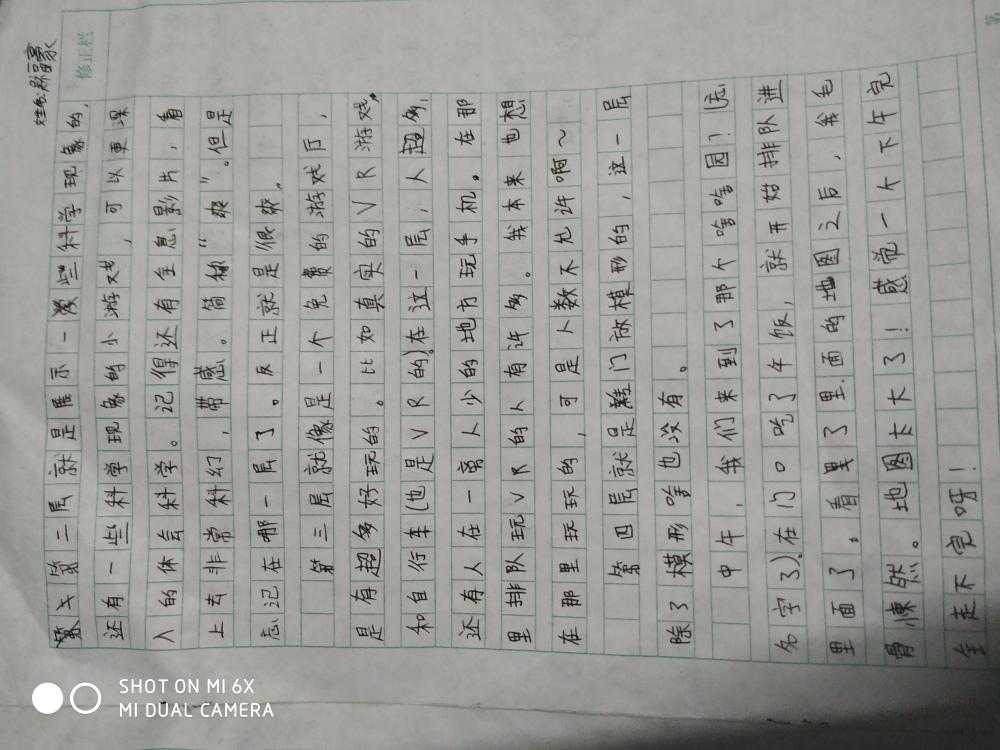 修正栏
第二层就是展示一些科学现象的,
还有一些科学现象的小游戏,可以更深
入的体会科学。记得还有全息影片,看
上去非常科幻,带感。简称“爽”。但是
忘记在哪一层了。反正就是很爽。
第三层就像是一个免费的游戏厅,
是有超多好玩的。比如真实的VR游戏,
和自行车(也是VR的)。在这一层,人超多,
还有人在一离人少的地方玩手机。在那
里排队玩VR的人有许多。我本来也想
在那里玩玩的,可是人数不允许啊~
第四层就是鞋门做模形的,这一层
除了模形啥也没有。
中午,我们来到了那个啥啥园?(忘
名字了)。在门口吃了午饭,就开始排队进
里面了。看里了里面的地图之后,我毛
骨悚然。地图大大了!感觉一个下午完
全走不完呀!
SHOT ON MI 6X
MI DUAL CAMERA